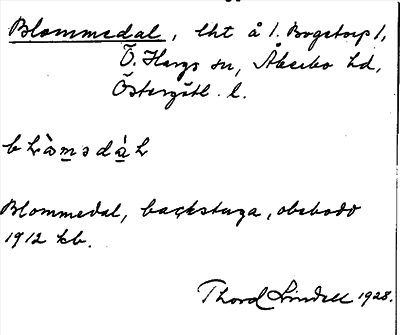 Blommedal, lht å 1. Bogetorp 1,
V. Hargs sn, Åkerbo hd,
Östergötl. l.
Blommedal, backstuga, obebodd
1912 kb.
Thord Lindell 1928.